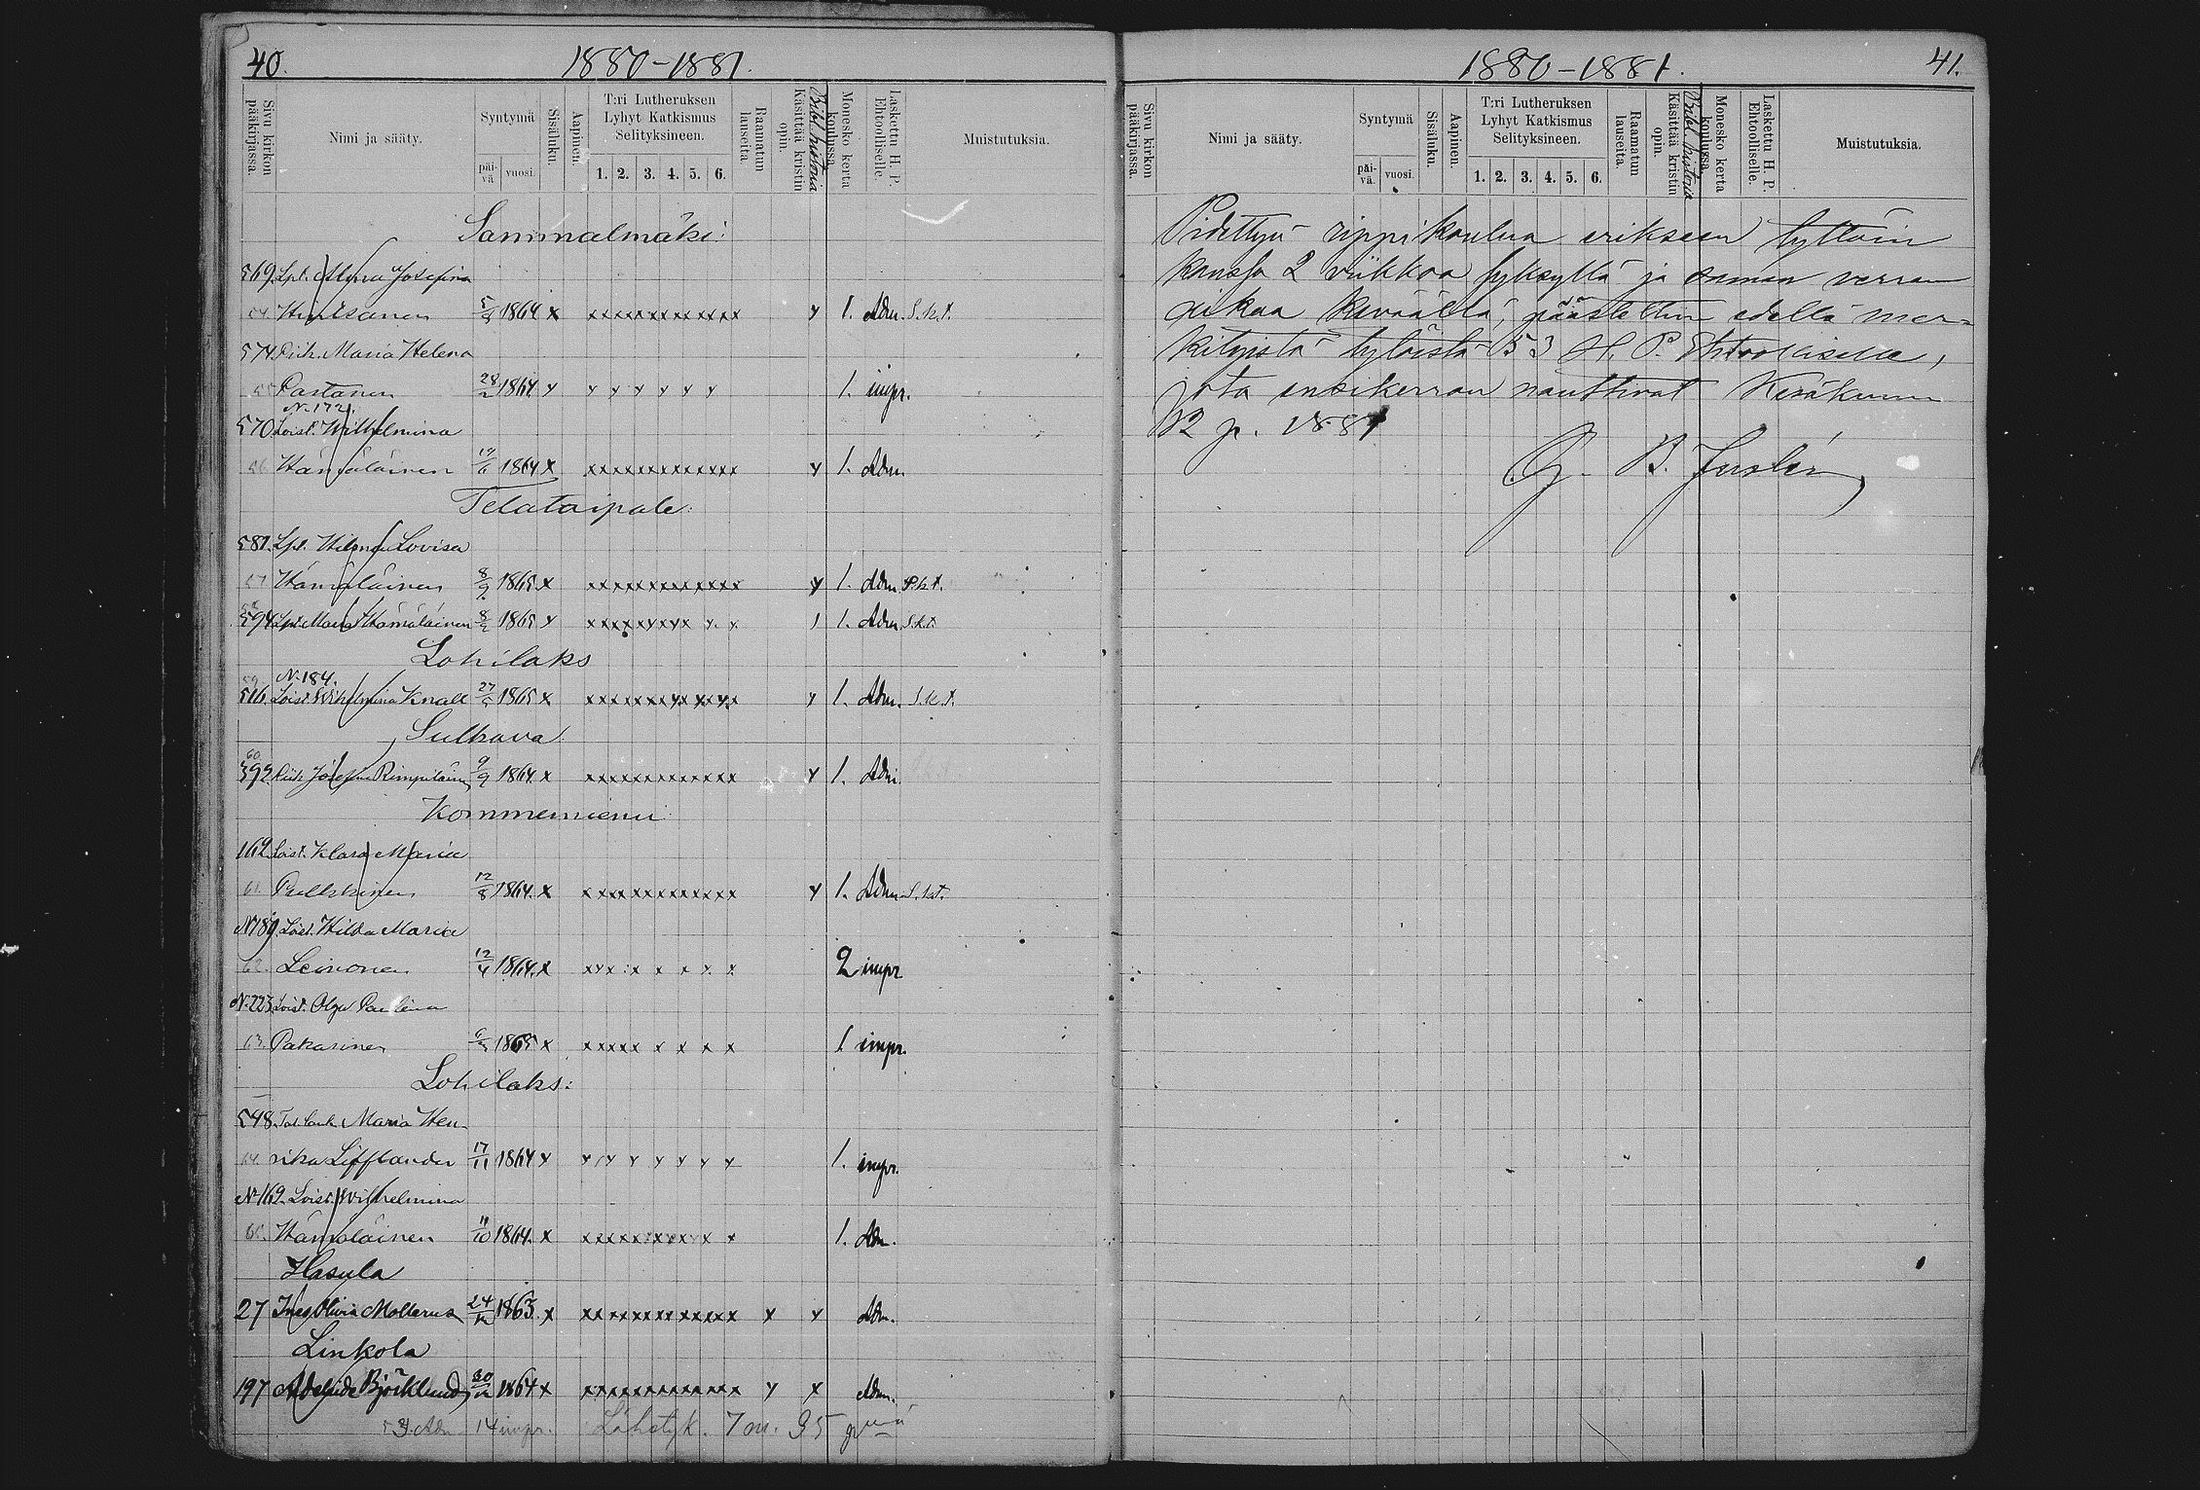 40.
1880-1881.
Sivu kirkon pääkirjassa.
Nimi ja sääty.
Syntymä
päi-vä
vuosi.
Sisäluku.
Aapinen.
T:ri Lutheruksen
Lyhyt Katkismus
Selityksineen.
1. 2. 3. 4. 5. 6.
Raamatun lauseita.
Käsittää kristin opin.
Bibl. historia
Monesko kerta koulussa.
Laskettu H. P. Ehtoolliselle.
Muistutuksia.
Sammalmäki:
569. Lpt. Alma Josefina
1864 x xxxxxxxxxxxx y 1. Adm. S.k.t.
574 Maria Helena
Partanen 28/2 1864 y y y y y y y 1. impr.
N. 172.
570 Loist. Wilhelmina
56 Hämäläinen 1864 x xxxxxxxxxxxx y 1. Adm.
Telataipale:
581. Lpt. Hilma Lovisa
57 Hämäläinen 8/9 1865 x xxxxxxxxxxxx y 1. Adm. S.k.t.
594 Lpt. Maria Hämäläinen 8/2 1865 y 1. Adm. S.k.t.
Lohilaks
59. N. 184.
516. Loist. Wilhelmina Knall 27/5 1865 x y 1. Adm. S.k.t.
Sulkava
60.
Josefina Rimpiläinen 9/9 1864. x xxxxxxxxxxxx y 1. Adm.
Kommerniemi
162. Loist. Klara Maria
61. Pulkkinen 12/8 1864. x xxxxxxxxxxxx y 1. Adm. S.k.t.
N189. Loist. Hilda Maria
62. Leinonen 12/4 1864. x 2 impr
N. 223 Loist. Olga Paulina
63. Pakarinen 1865 x xxxxx x x x x 1 impr.
Lohilaks:
548. Maria Hen-
64. rika Lifflander 17/11 1864 y 1. impr.
N. 169. Loist. Wilhelmina
65. Hämäläinen 11/10 1864. x 1. Adm.
Hasula
27 Ines Olivia Mollerus 24/12 1863. x xxxxxxxxxxxx x y Adm.
Linkola
197 Adelaide Björklund 30/12 1864 x xxxxxxxxxxxx y x Adm.
53 Adm 14 impr. Lähetyk. 7 m. 35 p:iä
1880-1881.
41.
Sivu kirkon pääkirjassa.
Nimi ja sääty.
Syntymä
päi-vä.
vuosi.
Sisäluku.
Aapinen.
T:ri Lutheruksen
Lyhyt Katkismus
Selityksineen.
1. 2. 3. 4. 5. 6.
Raamatun lauseita.
Käsittää kristin opin.
Bibl. historia
Monesko kerta koulussa.
Laskettu H. P. Ehtoolliselle.
Muistutuksia.
Pidettyä rippikoulua erikseen tyttöin
kanssa 2 viikkoa syksyllä ja saman verran
aikaa keväällä, päästettiin edellä mer-
kityistä tytöistä 53 H. P. Ehtoolliselle,
jota ensikerran nauttivat Kesäkuun
12 p. 1881
G. B. Juslén,